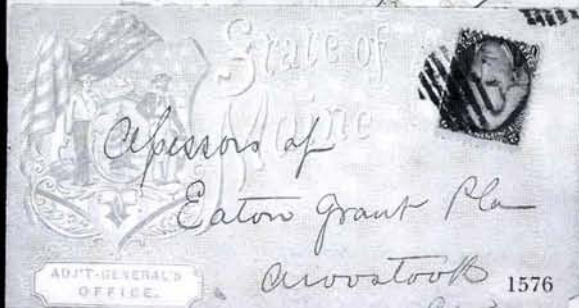 State of
Maine
Assessors of
Eaton Grant Pla
Aroostook
ADJ'T-GENERAL'S
OFFICE.
1576